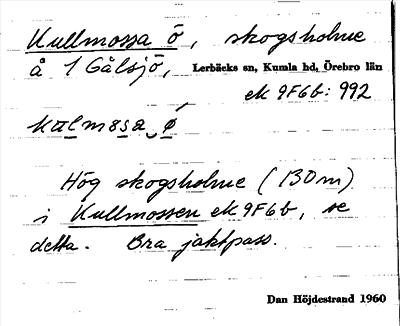 Kullmossa ö, skogsholme
å 1 Gålsjö, Lerbäcks sn, Kumla hd, Örebro län
ek 9F6b: 992
kulmosa ø
Hög skogsholme (130 m)
i Kullmossen ek 9F6b, se
detta. Bra jaktpass.
Dan Höjdestrand 1960